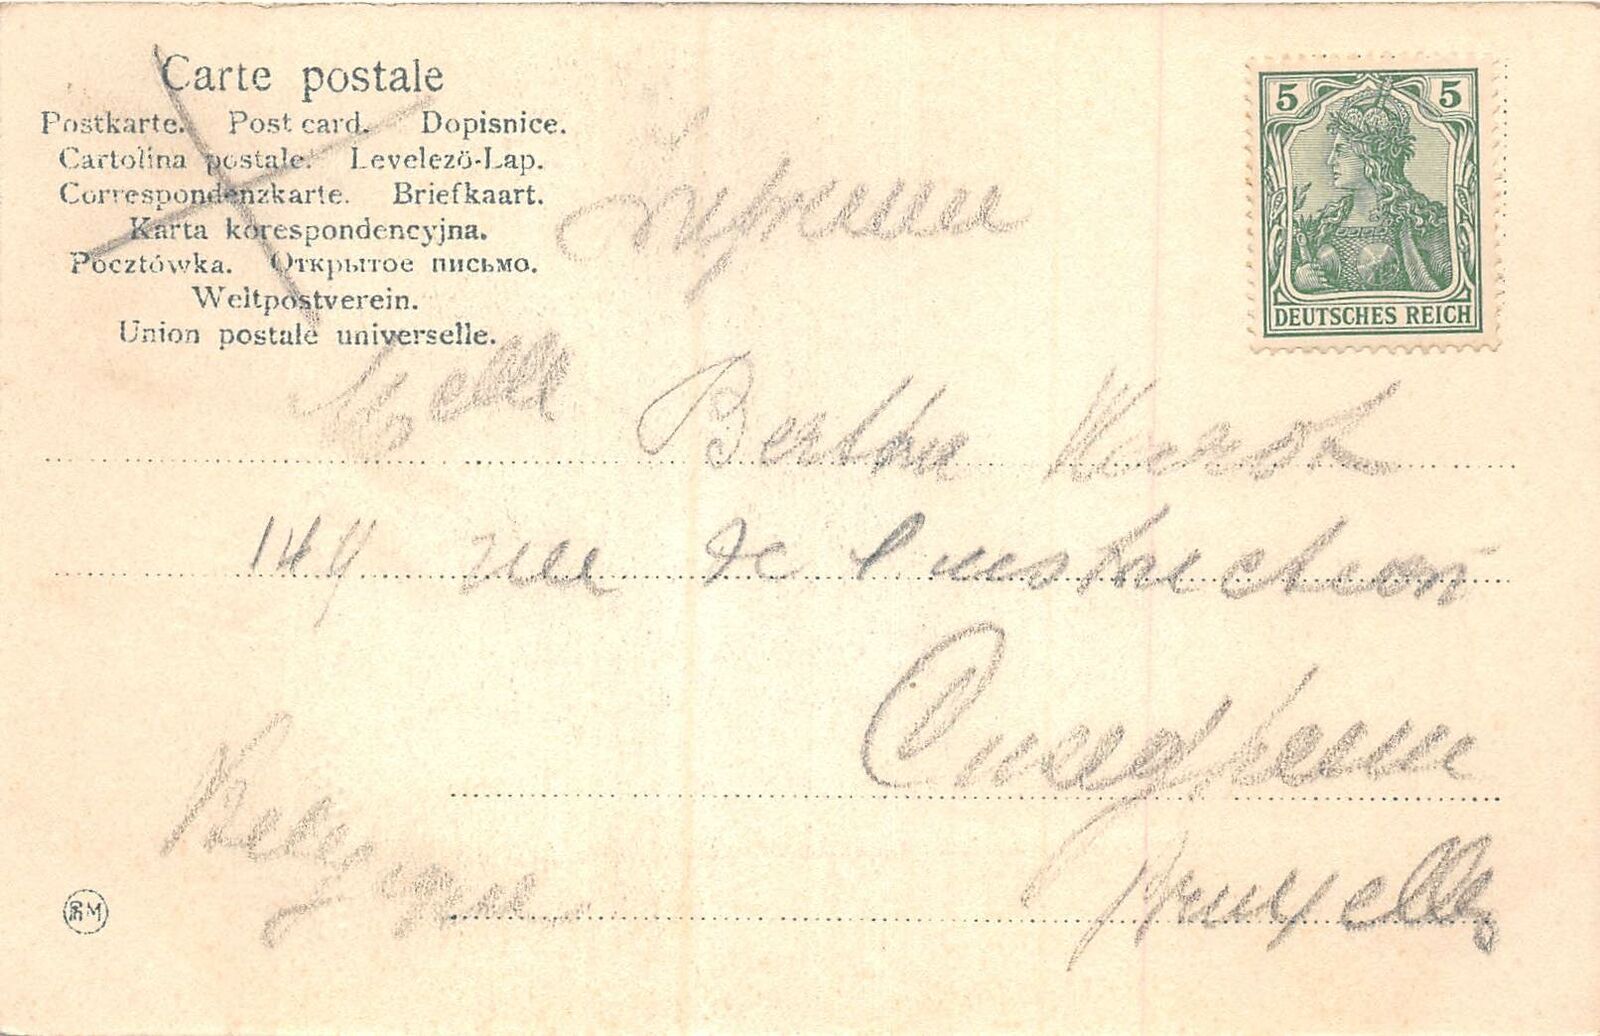 Carte postale
Postkarte. Post card. Dopisnice.
Cartolina postale. Levelező-Lap.
Correspondenzkarte. Briefkaart.
Karta korespondencyjna.
Pocztówka. Открытое письмо.
Weltpostverein.
Union postale universelle.
5 5
DEUTSCHES REICH
Imprimé
Melle Bertha
144 rue de l'instruction
Bruxelles
Belgique